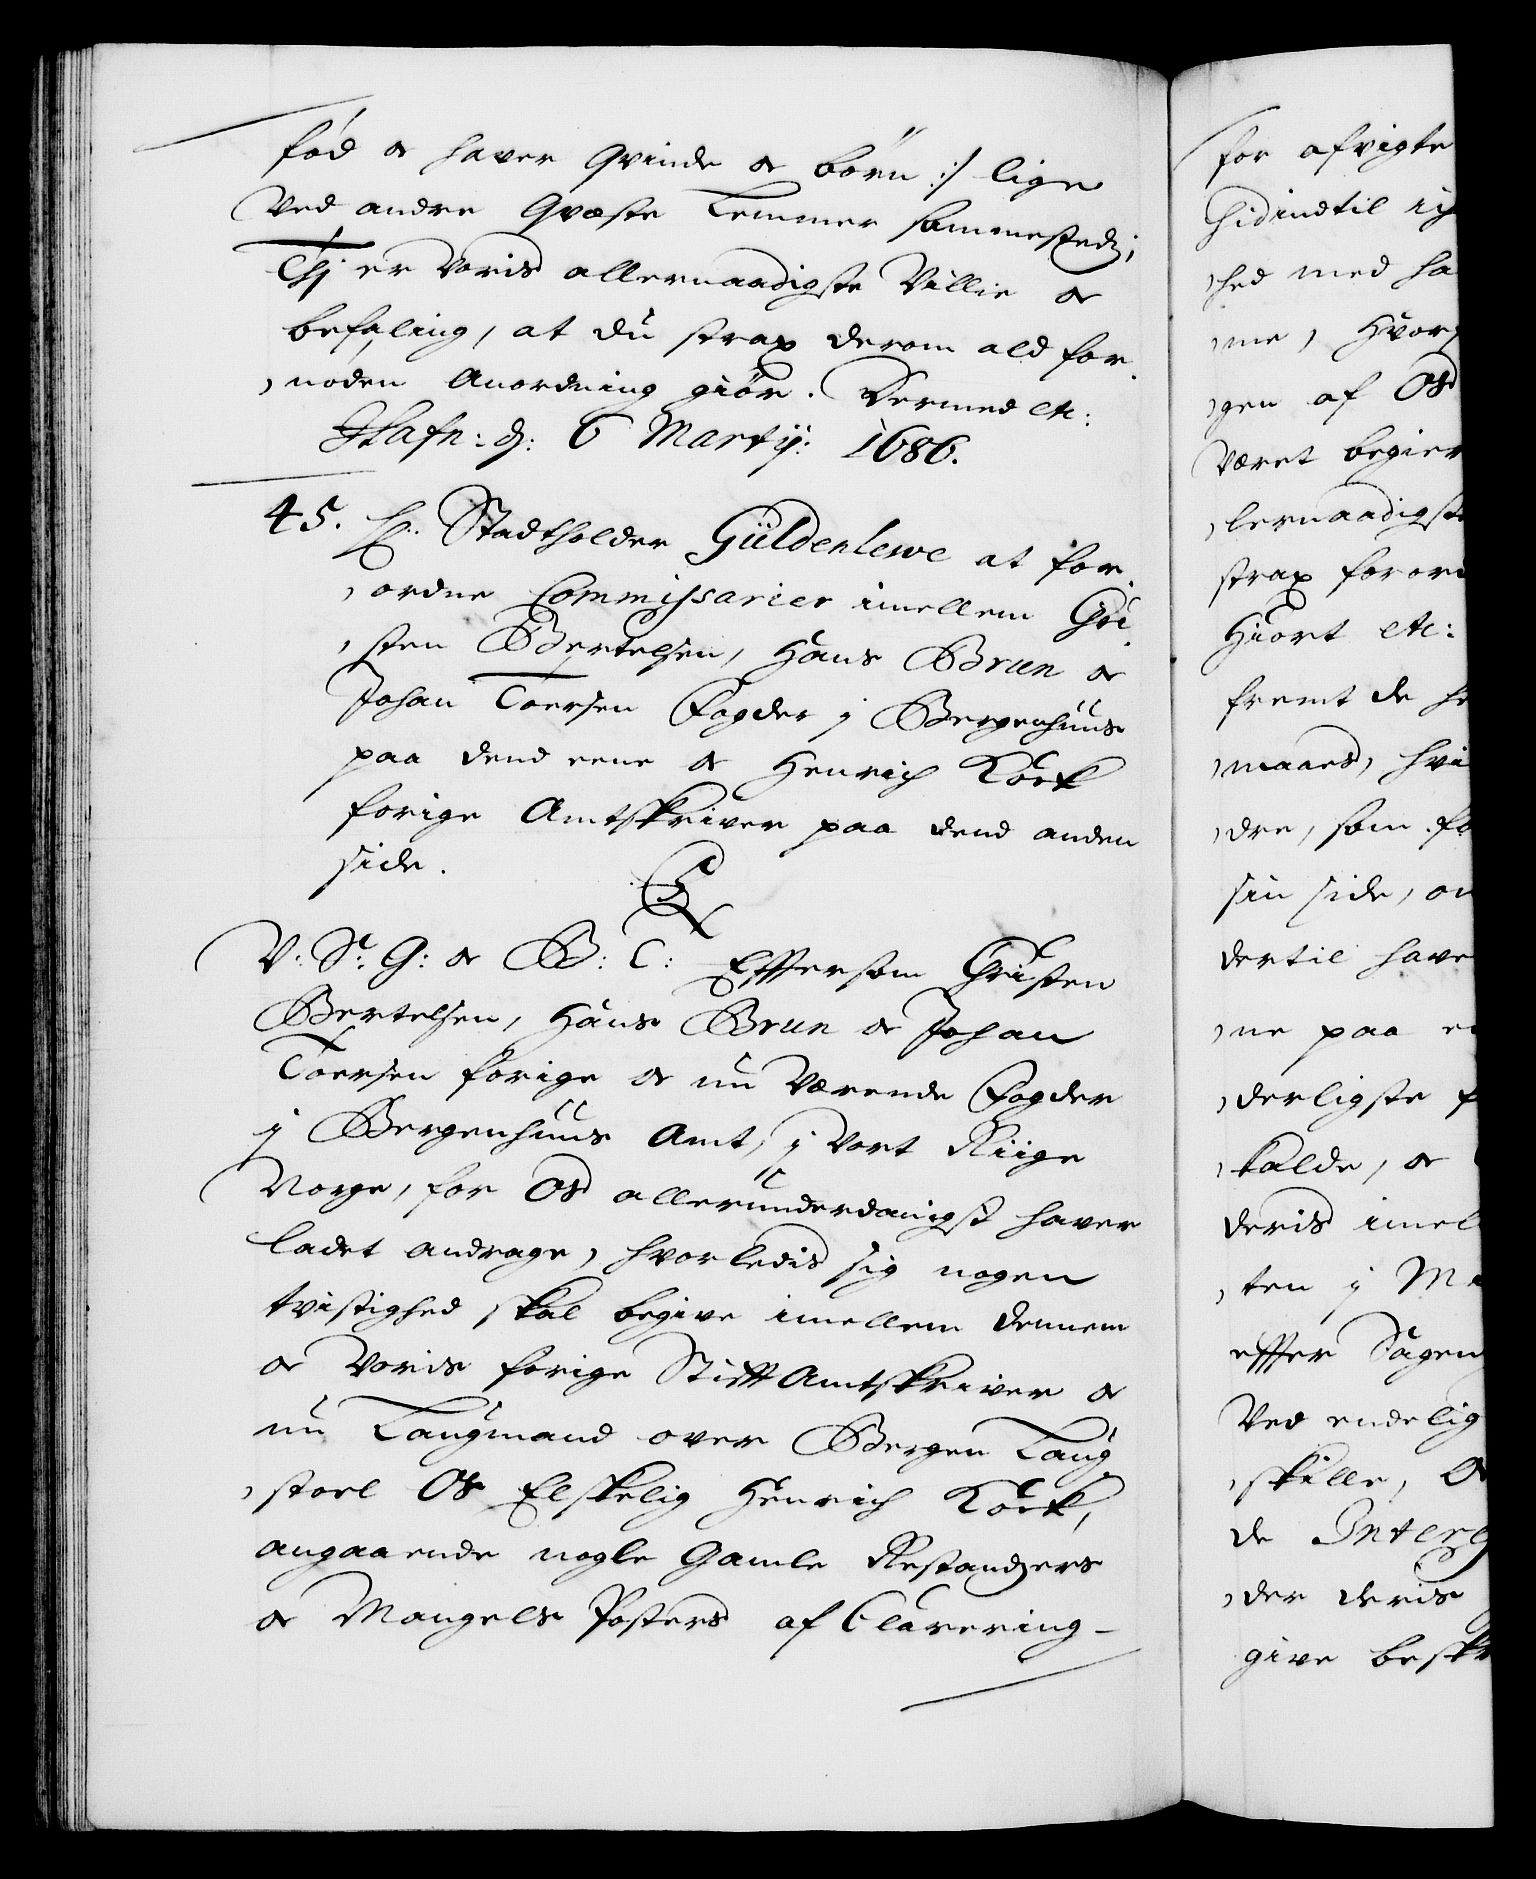 fød og haver Qvinde og börn :/ lige
Ved andre Qvæste Lemmer sammestedz;
Thj er Voris allernaadigste Villie og
befaling, at du strax derom ald for¬
nöden Anordning giör. Dermed etc:
Hafn: d: 6 Martij: 1686.
45. H: Stadtholder Güldenlewe at for¬
ordne Commissarier imellem Chri¬
sten Bertelsen, Hans Brun og
Johan Toersen Fogder j Bergenhuus
paa dend eene og Henrich Körk
forige Amtskriver paa dend anden
side.
C5
V: St: G: og B: C: Effersom Christen
Bertelsen, Hans Brun og Johan
Toersen forige og nu Værende Fogder
j Bergenhuus Amt, j Vort Riige
Norge, for Os allerunderdanigst haver
ladet andrage, hvorledis sig nogen
tvistighed skal begive imellem dennem
og Voris forige StifftAmtskriver og
nu Laugmand over Bergen Laug
stoel Os Elskelig Henrich Körk,
angaaende nogle Gamle Restandzers
og Mangels Posters af Clarering-
for afvigte
hidindtil ich
hed med ha
me, Hvor
gen af Os
Været begier
lernaadigst
strax foror
Hiort etc:
fremt de h
maard, hvi
dre, som fo
sin side, o
dertil have
ne paa e
derligste f
kalde, og
deris imel
ten j M
effter Sagen
Ved endelig
skille, O
de Interes
der deris
give beskr